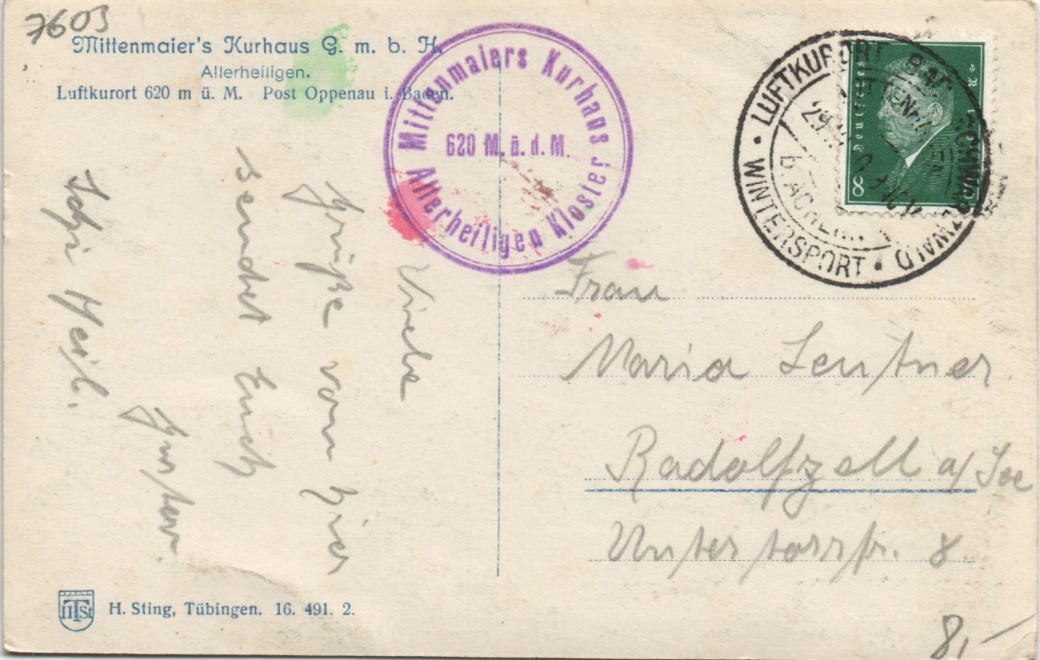 7603
Mittenmaier's Kurhaus G. m. b. H.
Allerheiligen.
Luftkurort 620 m ü. M. Post Oppenau i. Baden.
Mittenmaiers Kurhaus
620 M. ü. d. M.
Allerheiligen Kloster
LUFTKURORT
WINTERSPORT
b. ACHERN
Deutsches
8
Viele
Grüße von hier
sendet Euch
Gustav.
Schi Heil.
Frau
Maria Leutner
Radolfzell a/See
Untertorstr. 8.
HTSt
H. Sting, Tübingen. 16. 491. 2.
8,-